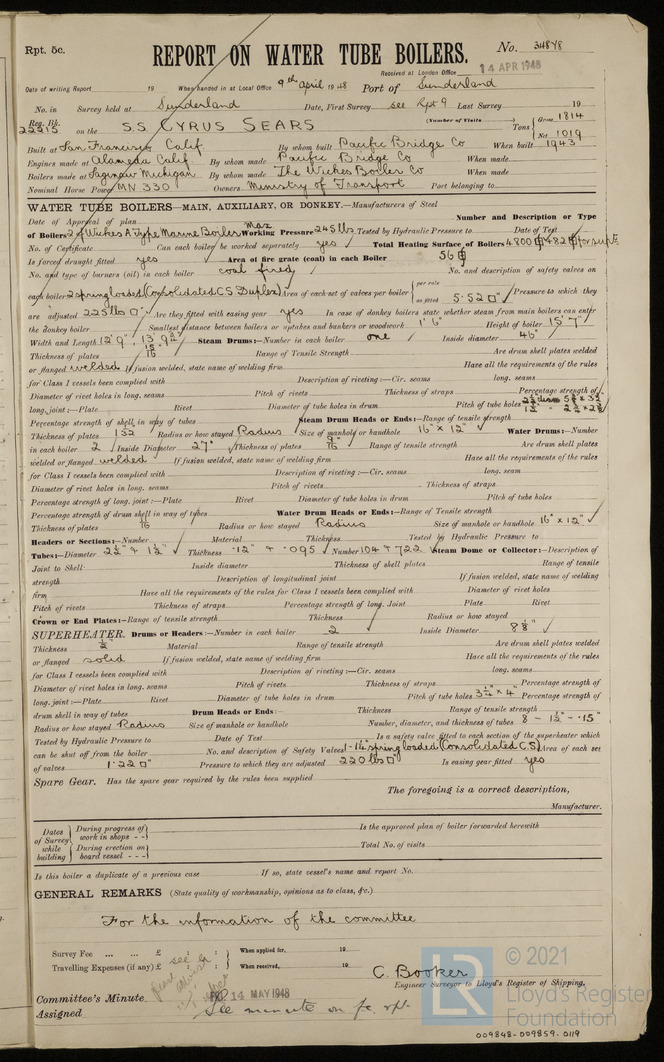 Rpt. 5c.
REPORT ON WATER TUBE BOILERS.
No. 34848
Received at London Office 14 APR 1948
Date of writing Report 19 When handed in at Local Office 9th April 1948 Port of Sunderland
No. in Survey held at Sunderland Date, First Survey see Rpt 9 Last Survey 19
Reg. Bk. (Number of Visits )
22215 on the S.S. CYRUS SEARS Tons { Gross 1814 Net 1019
Built at San Francisco Calif By whom built Pacific Bridge Co When built 1943
Engines made at Alameda Calif By whom made Pacific Bridge Co When made
Boilers made at Saginaw Michigan By whom made The Wickes Boiler Co When made
Nominal Horse Power MN 330 Owners Ministry of Transport Port belonging to
WATER TUBE BOILERS—MAIN, AUXILIARY, OR DONKEY.—Manufacturers of Steel
Date of Approval of plan Number and Description or Type
of Boilers 2 of Wickes A Type Marine Boiler Max Working Pressure 245 lbs Tested by Hydraulic Pressure to Date of Test
No. of Certificate Can each boiler be worked separately yes Total Heating Surface of Boilers 4800
Is forced draught fitted yes Area of fire grate (coal) in each Boiler 56
No. and type of burners (oil) in each boiler coal fired No. and description of safety valves on
each boiler 2 spring loaded (Consolidated C.S. Duplex) Area of each set of valves per boiler { per rule as fitted 5.52 □" Pressure to which they
are adjusted 225 lbs □" Are they fitted with easing gear yes In case of donkey boilers state whether steam from main boilers can enter
the donkey boiler Smallest distance between boilers or uptakes and bunkers or woodwork 1' 6" Height of boiler 15' 7"
Width and Length 12' 9", 13' Steam Drums:—Number in each boiler one Inside diameter 46"
Thickness of plates 15/16 Range of Tensile Strength Are drum shell plates welded
or flanged welded If fusion welded, state name of welding firm Have all the requirements of the rules
for Class I vessels been complied with Description of riveting:—Cir. seams long. seams
Diameter of rivet holes in long. seams Pitch of rivets Thickness of straps Percentage strength of
long. joint:—Plate Rivet Diameter of tube holes in drum Pitch of tube holes
Percentage strength of shell in way of tubes Steam Drum Heads or Ends:—Range of tensile strength
Thickness of plates Radius or how stayed Radius Size of manhole or handhole 16" x 12" Water Drums:—Number
in each boiler 2 Inside Diameter 27" Thickness of plates 9/16" Range of tensile strength Are drum shell plates
welded or flanged welded If fusion welded, state name of welding firm Have all the requirements of the rules
for Class I vessels been complied with Description of riveting:—Cir. seams long. seam
Diameter of rivet holes in long. seams Pitch of rivets Thickness of straps
Percentage strength of long. joint:—Plate Rivet Diameter of tube holes in drum Pitch of tube holes
Percentage strength of drum shell in way of tubes Water Drum Heads or Ends:—Range of Tensile strength
Thickness of plates Radius or how stayed Radius Size of manhole or handhole 16" x 12"
Headers or Sections:—Number Material Thickness Tested by Hydraulic Pressure to
Tubes:—Diameter 2½" + 1½" Thickness .12" + .095 Number 104 + 722 Steam Dome or Collector:—Description of
Joint to Shell Inside diameter Thickness of shell plates Range of tensile
strength Description of longitudinal joint If fusion welded, state name of welding
firm Have all the requirements of the rules for Class I vessels been complied with Diameter of rivet holes
Pitch of rivets Thickness of straps Percentage strength of long. Joint Plate Rivet
Crown or End Plates:—Range of tensile strength Thickness Radius or how stayed
SUPERHEATER. Drums or Headers:—Number in each boiler 2 Inside Diameter
Thickness ½" Material Range of tensile strength Are drum shell plates welded
or flanged solid If fusion welded, state name of welding firm Have all the requirements of the rules
for Class I vessels been complied with Description of riveting:—Cir. seams long. seams
Diameter of rivet holes in long. seams Pitch of rivets Thickness of straps Percentage strength of
long. joint:—Plate Rivet Diameter of tube holes in drum Pitch of tube holes Percentage strength of
drum shell in way of tubes Drum Heads or Ends:— Thickness Range of tensile strength
Radius or how stayed Radius Size of manhole or handhole Number, diameter, and thickness of tubes 8 - 1½" - .15"
Tested by Hydraulic Pressure to Date of Test Is a safety valve fitted to each section of the superheater which
can be shut off from the boiler No. and description of Safety Valves 1 - 1¼" spring loaded (Consolidated C.S.) Area of each set
of valves 1.22 □" Pressure to which they are adjusted 220 lbs □" Is easing gear fitted yes
Spare Gear. Has the spare gear required by the rules been supplied
The foregoing is a correct description,
Manufacturer.
Dates of Survey while building { During progress of work in shops - - Is the approved plan of boiler forwarded herewith
During erection on board vessel - - - Total No. of visits
Is this boiler a duplicate of a previous case If so, state vessel's name and report No.
GENERAL REMARKS (State quality of workmanship, opinions as to class, &c.)
For the information of the committee
Survey Fee ... ... £ : : When applied for, 19
Travelling Expenses (if any) £ : : When received, 19
C. Booker
Engineer Surveyor to Lloyd's Register of Shipping.
Committee's Minute FRI. 14 MAY 1948
Assigned See minute on
© 2021
LR
Lloyd's Register
Foundation
009848-009859-0119